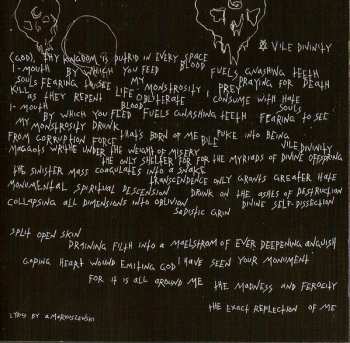 VILE DIVINITY
(GOD), THY KINGDOM IS PUTRID IN EVERY SPACE
MOUTH BY WHICH YOU FEED BLOOD FUELS GNASHING TEETH
SOULS FEARING TO SEE MY MONSTROSITY I PREY PRAYING FOR DEATH
KILL AS THEY REPENT LIFE OBLITERATE CONSUME WITH HATE
MOUTH BY WHICH YOU FEED BLOOD FUELS GNASHING TEETH SOULS FEARING TO SEE
MY MONSTROSITY DRINK
FROM CORRUPTION FORCE THATS BORN OF ME BILE PUKE INTO BEING VILE DIVINITY
MAGGOTS WRITHE UNDER THE WEIGHT OF MISERY
THE ONLY SHELTER FOR FOR THE MYRIADS OF DIVINE OFFSPRING
THE SINISTER MASS COAGULATES INTO A SNAKE
TRANSCENDENCE ONLY GRANTS GREATER HATE
MONUMENTAL SPIRITUAL DESCENSION DRUNK ON THE ASHES OF DESTRUCTION
COLLAPSING ALL DIMENSIONS INTO OBLIVION DIVINE SELF-DISSECTION
SADISTIC GRIN
SPLIT OPEN SKIN
DRAINING FILTH INTO A MAELSTROM OF EVER DEEPENING ANGUISH
GAPING HEART WOUND EMITING GOD I HAVE SEEN YOUR MONUMENT
FOR IT IS ALL AROUND ME THE MADNESS AND FEROCITY
THE EXACT REFLECTION OF ME
LYRICS BY